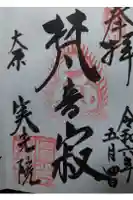 奉拝
令和六年
五月四日
梵音寂
大原
実光院